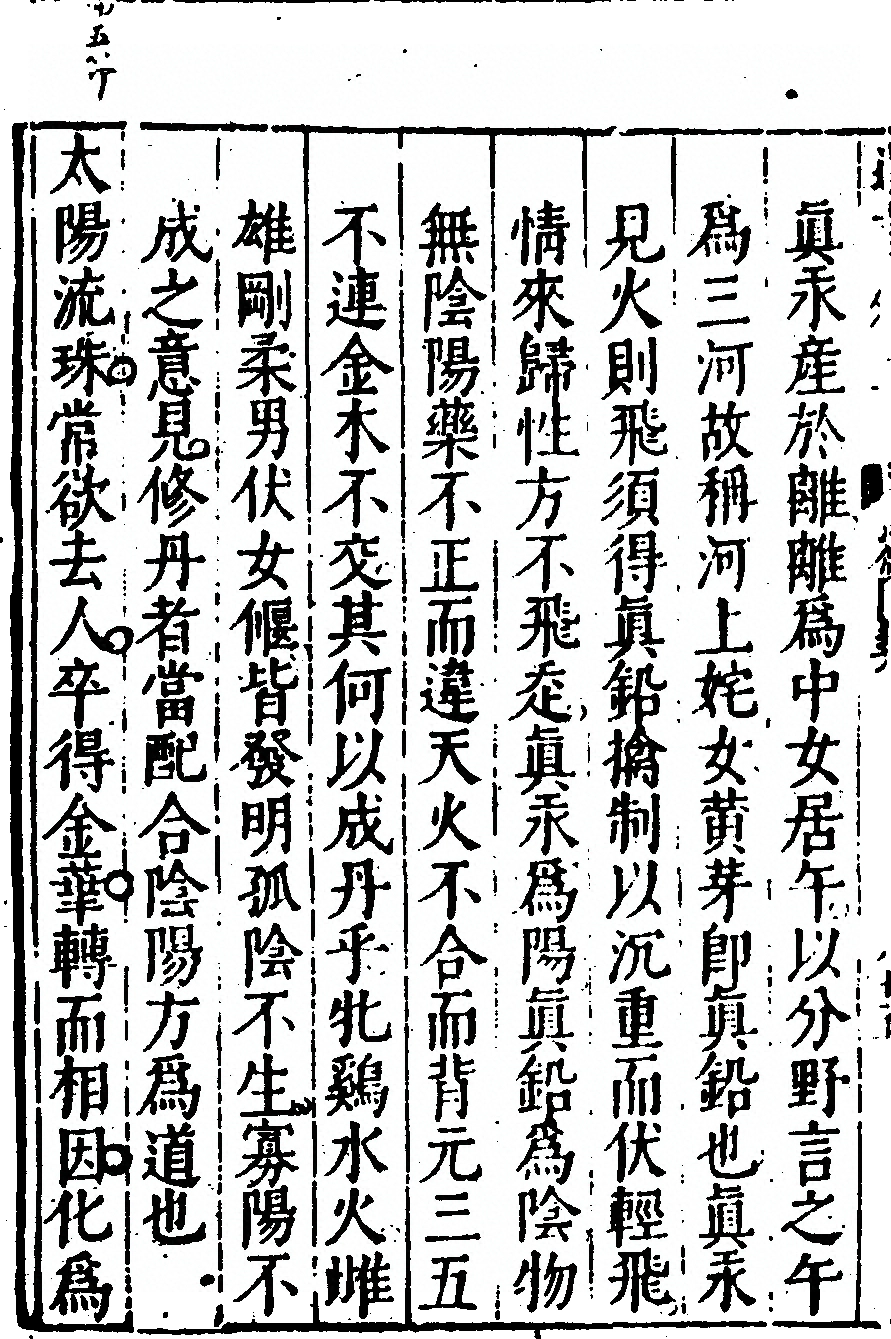 眞汞産於離離爲中女居午以分野言之午
爲三河故稱河上姹女黄芽卽眞鉛也眞汞
見火則飛須得眞鉛擒制以沉重而伏輕飛
情來歸性方不飛走眞汞爲陽眞鉛爲陰物
無陰陽藥不正而違天火不合而背元三五
不連金木不交其何以成丹乎牝鷄水火雌
雄剛柔男伏女偃皆發明孤陰不生寡陽不
成之意見修丹者當配合陰陽方爲道也
太陽流珠常欲去人卒得金華轉而相因化爲